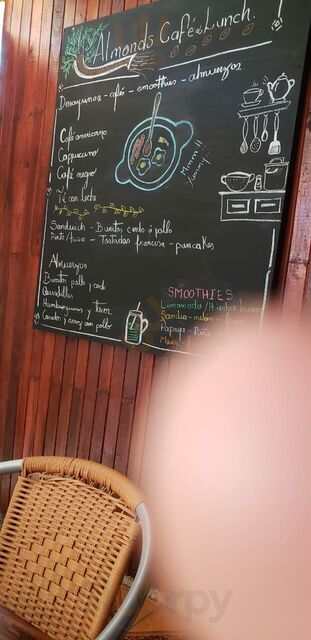 Almonds Café & Lunch.
Desayunos - cafés - smoothies - almuerzos
Café americano
Cappuccino
Café negro
Té con leche
Mmm!!
Yummy!
Sandwich - Burritos cerdo ó pollo
Pinto/ - Tostadas francesa - pancakes
Almuerzos
Burritos pollo y cerdo
Quesadillas
Hamburguesas y Tacos
y arroz con pollo
SMOOTHIES
Limonada/Hierba buena
Sandia - melon -
Papaya - Piña